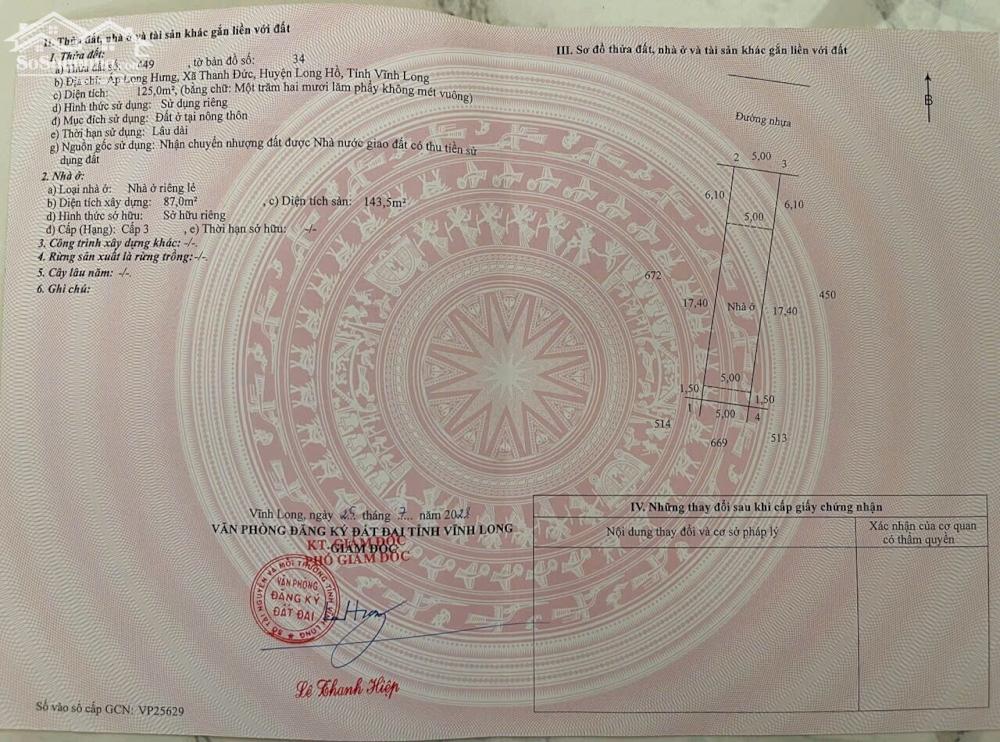 II. Thửa đất, nhà ở và tài sản khác gắn liền với đất
1. Thửa đất:
a) Thửa đất số: 449 , tờ bản đồ số: 34
b) Địa chỉ: Ấp Long Hưng, Xã Thanh Đức, Huyện Long Hồ, Tỉnh Vĩnh Long
c) Diện tích: 125,0m², (bằng chữ: Một trăm hai mươi lăm phẩy không mét vuông)
d) Hình thức sử dụng: Sử dụng riêng
đ) Mục đích sử dụng: Đất ở tại nông thôn
e) Thời hạn sử dụng: Lâu dài
g) Nguồn gốc sử dụng: Nhận chuyển nhượng đất được Nhà nước giao đất có thu tiền sử
dụng đất
2. Nhà ở:
a) Loại nhà ở: Nhà ở riêng lẻ
b) Diện tích xây dựng: 87,0m² , c) Diện tích sàn: 143,5m²
d) Hình thức sở hữu: Sở hữu riêng
đ) Cấp (Hạng): Cấp 3 , e) Thời hạn sở hữu: -/-
3. Công trình xây dựng khác: -/-.
4. Rừng sản xuất là rừng trồng:-/-.
5. Cây lâu năm: -/-.
6. Ghi chú:
Vĩnh Long, ngày 25 tháng 7 năm 2023
VĂN PHÒNG ĐĂNG KÝ ĐẤT ĐAI TỈNH VĨNH LONG
KT. GIÁM ĐỐC
GIÁM ĐỐC
PHÓ GIÁM ĐỐC
SỞ TÀI NGUYÊN VÀ MÔI TRƯỜNG TỈNH VĨNH LONG
VĂN PHÒNG
ĐĂNG KÝ
ĐẤT ĐAI
Lê Thanh Hiệp
Số vào sổ cấp GCN: VP25629
III. Sơ đồ thửa đất, nhà ở và tài sản khác gắn liền với đất
B
Đường nhựa
2 5,00 3
6,10 6,10
5,00
672
450
17,40 Nhà ở 17,40
5,00
1,50 1,50
1 5,00 4
514
669 513
IV. Những thay đổi sau khi cấp giấy chứng nhận
Nội dung thay đổi và cơ sở pháp lý
Xác nhận của cơ quan
có thẩm quyền